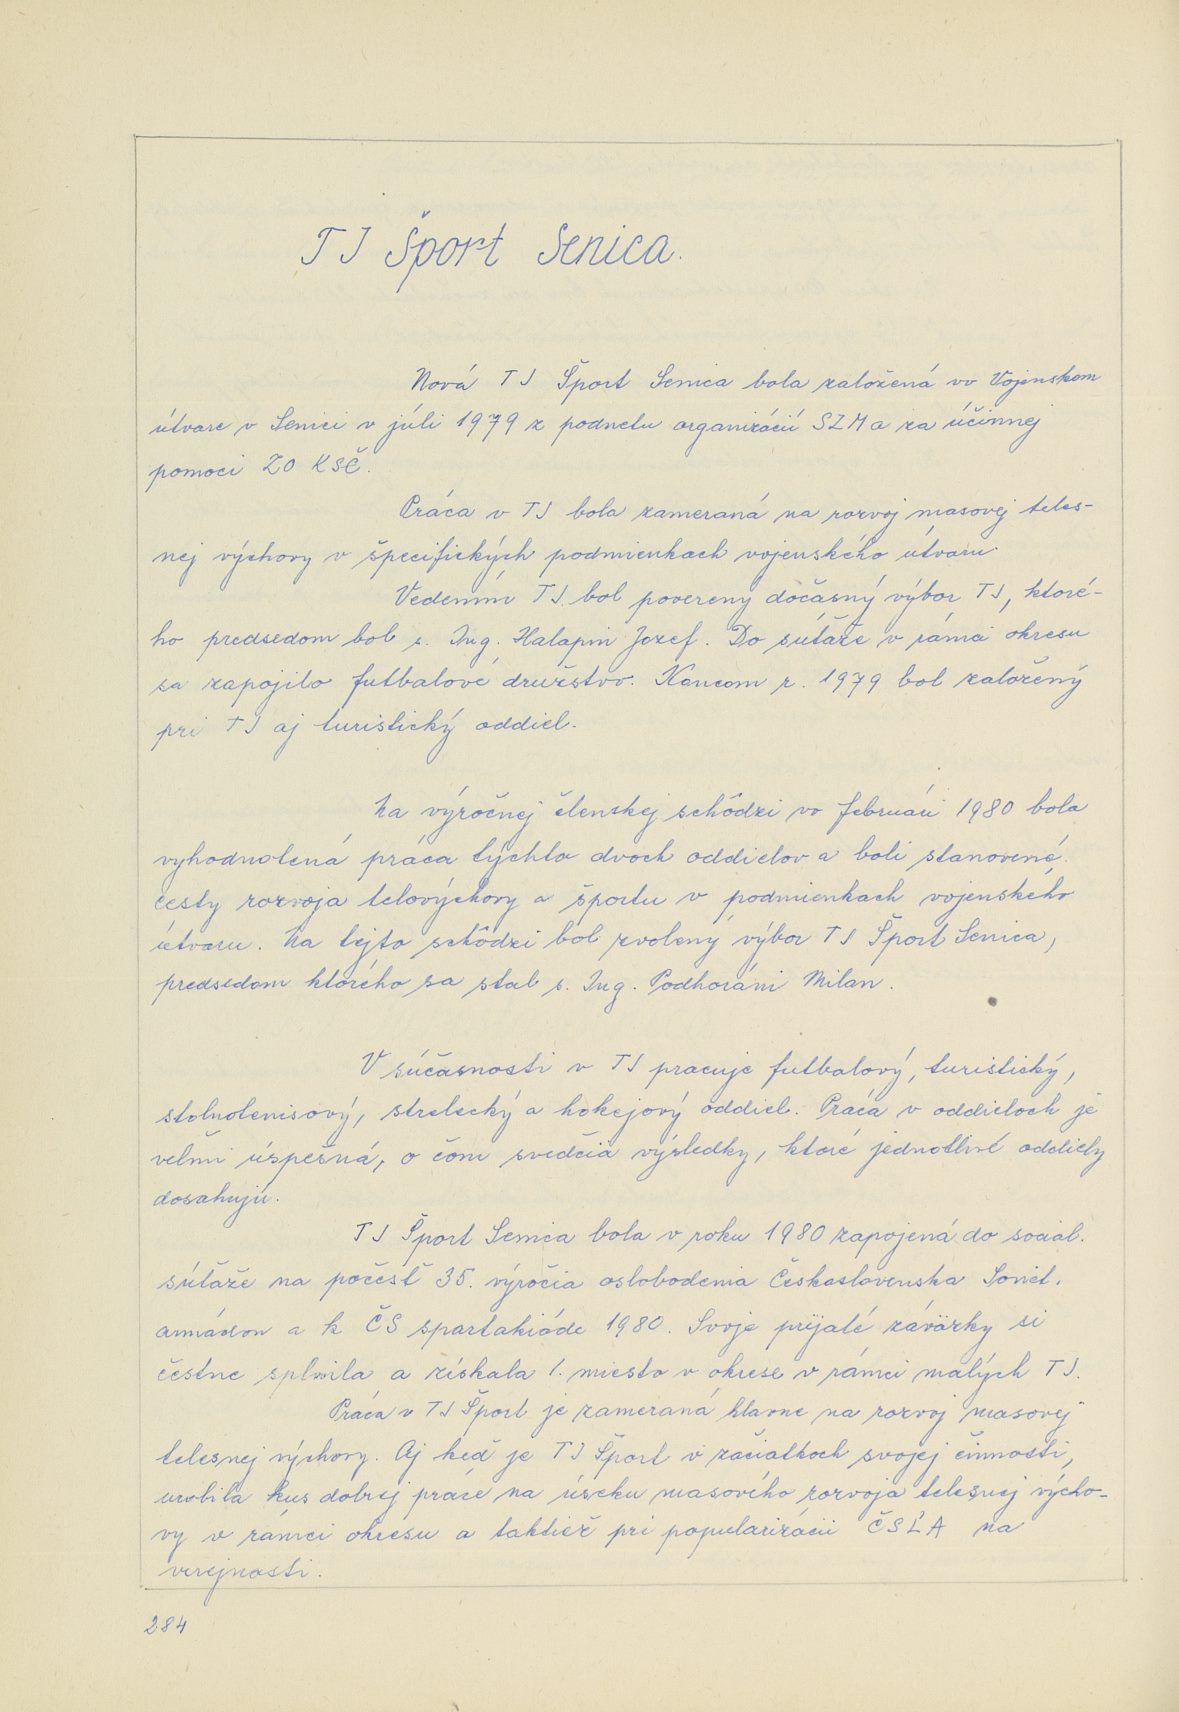 TJ Šport Senica.
Nová TJ Šport Senica bola založená vo Vojenskom
útvare v Senici v júli 1979 z podnetu organizácií SZM a za účinnej
pomoci ZO KSČ.
Práca v TJ bola zameraná na rozvoj masovej teles-
nej výchovy v špecifických podmienkach vojenského útvaru.
Vedením TJ bol poverený dočasný výbor TJ, ktoré-
ho predsedom bol s. Ing. Halapin Jozef. Do súťaže v rámci okresu
sa zapojilo futbalové družstvo. Koncom r. 1979 bol založený
pri TJ aj turistický oddiel.
Na výročnej členskej schôdzi vo februári 1980 bola
vyhodnotená práca týchto dvoch oddielov a boli stanovené
cesty rozvoja telovýchovy a športu v podmienkach vojenského
útvaru. Na tejto schôdzi bol zvolený výbor TJ Šport Senica,
predsedom ktorého sa stal s. Ing. Podhoráni Milan.
V súčasnosti v TJ pracuje futbalový, turistický,
stolnotenisový, strelecký a hokejový oddiel. Práca v oddieloch je
veľmi úspešná, o čom svedčia výsledky, ktoré jednotlivé oddiely
dosahujú.
TJ Šport Senica bola v roku 1980 zapojená do social.
súťaže na počesť 35. výročia oslobodenia Československa Soviet.
armádou a k ČS spartakiáde 1980. Svoje prijaté záväzky si
čestne splnila a získala 1. miesto v okrese v rámci malých TJ.
Práca v TJ Šport je zameraná hlavne na rozvoj masovej
telesnej výchovy. Aj keď je TJ Šport v začiatkoch svojej činnosti,
urobila kus dobrej práce na úseku masového rozvoja telesnej výcho-
vy v rámci okresu a taktiež pri popularizácii ČSĽA na
verejnosti.
284